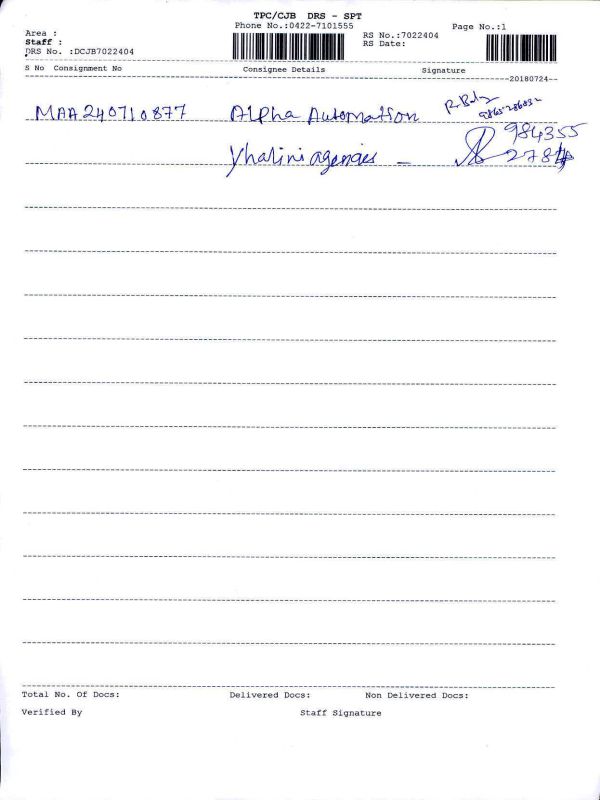 TPC/CJB DRS - SPT
Phone No.:0422-7101555
Page No.:1
Area :
Staff :
DRS No. :DCJB7022404
RS No.:7022404
RS Date:
S No Consignment No Consignee Details Signature
20180724
MAA240710877 Alpha Automation
Yhalini agencies - 984355
Total No. Of Docs: Delivered Docs: Non Delivered Docs:
Verified By Staff Signature